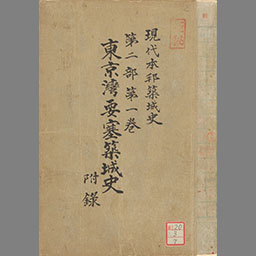 現代本邦築城史
第二部第一巻
東京湾要塞築城史
附録